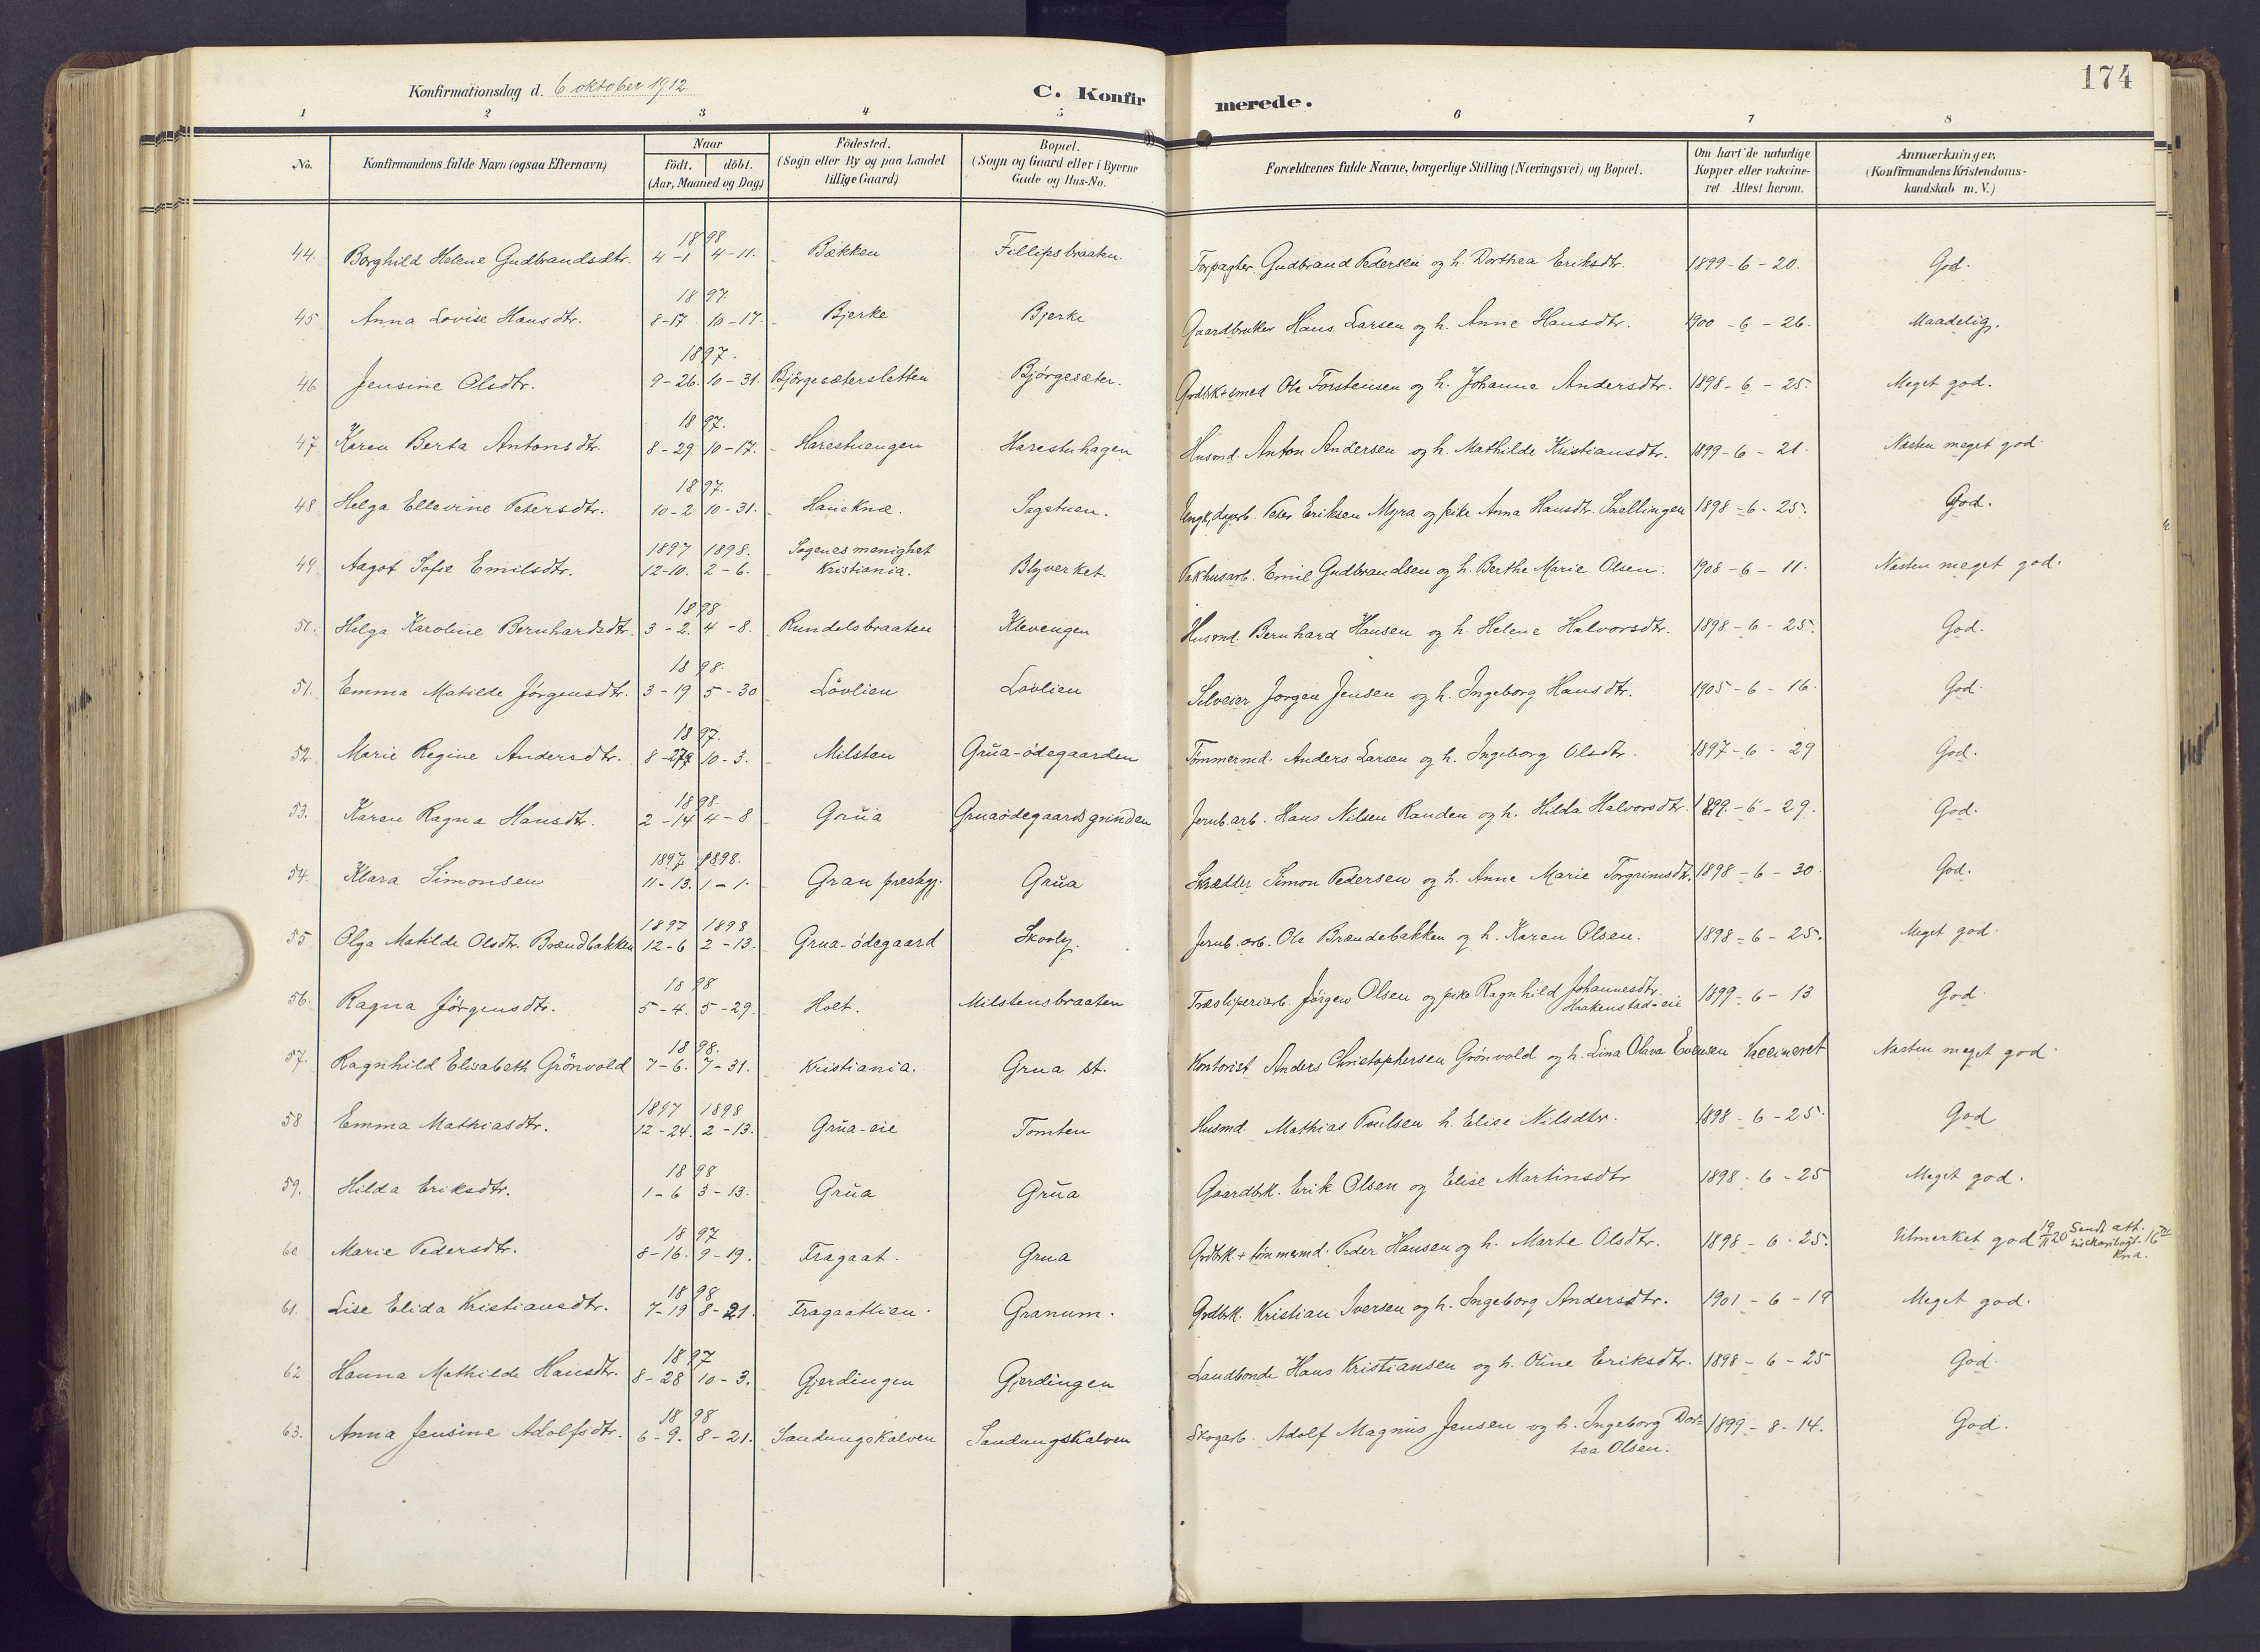 174
Konfirmationsdag d. 6 oktober 1912
C. Konfirmerede.
1 2 3 4 5 6 7 8
No. Konfirmandens fulde Navn (ogsaa Efternavn) Naar født. døbt. (Aar, Maaned og Dag) Födested. (Sogn eller By og paa Landet tillige Gaard) Bopæl. (Sogn og Gaard eller i Byerne Gade og Hus-No. Forældrenes fulde Navne, borgerlige Stilling (Næringsvei) og Bopæl. Om havt de naturlige Kopper eller vakcineret Attest herom. Anmærkninger. (Konfirmandens Kristendomskundskab m. V.)
44. Borghild Helene Gudbrandsdtr. 1898 4-1 4-11. Bækken Fillipsbraaten. Forpagter Gudbrand Pedersen og h. Dorthea Eriksdtr. 1899-6-20. God.
45 Anna Lovise Hansdtr. 1897. 8-17 10-17. Bjerke Bjerke Gaardbruker Hans Larsen og h. Anne Hansdtr. 1900-6-26. Maadelig.
46 Jensine Olsdtr. 1897. 9-26. 10-31. Björgesætersletten Bjørgesæter. Grdbk + smed Ole Torstensen og h. Johanne Andersdtr. 1898-6-25. Meget god.
47 Karen Berta Antonsdtr. 1897. 8-29 10-17. Harestuengen Harestuhagen Husmd. Anton Andersen og h. Mathilde Kristiansdtr. 1899-6-21. Næsten meget god
48 Helga Ellevine Petersdtr. 1897. 10-2 10-31. Haneknæ. Sagstuen. Ungk, dagarb. Peter Eriksen Myra og pike Anna Hansdtr. Snellingen 1898-6-25. God.
49 Aagot Sofie Emilsdtr. 1897 12-10. 1898. 2-6. Sagenes menighet Kristiania. Blyverket. Pakhusarb. Emil Gudbrandsen og h. Berthe Marie Olsen. 1908-6-11. Næsten meget god.
50. Helga Karoline Bernhardsdtr. 1898 3-2. 4-8. Rundelsbraaten Klevengen Husmd. Bernhard Hansen og h. Helene Halvorsdtr. 1898-6-25. God.
51. Emma Matilde Jörgensdtr. 1898. 3-19 5-30 Lövlien Lovlien Selveier Jorgen Jensen og h. Ingeborg Hansdtr. 1905-6-16. God.
52. Marie Regine Andersdtr. 1897. 8-27 10-3. Milsten Grua-ödegaarden Tømmermd. Anders Larsen og h. Ingeborg Olsdtr. 1897-6-29 God.
53. Karen Ragna Hansdtr. 1898. 2-14 4-8 Grua Gruaödegaardsgrinden Jernb.arb. Hans Nilsen Randen og h. Hilda Halvorsdtr. 1899.-6-29. God.
54. Klara Simonsen 1897 11-13. 1898. 1-1. Gran prestegj. Grua Skrædder Simon Pedersen og h. Anne Marie Torgrimsdtr. 1898-6-30. God.
55 Olga Matilde Olsdtr. Brændbakken 1897 12-6 1898 2-13. Grua-ödegaard Skovly. Jernb. arb. Ole Brændebakken og h. Karen Olsen. 1898-6-25. Meget god
56. Ragna Jörgensdtr. 1898 5-4. 5-29. Holt. Milstensbraaten Træsliperiarb. Jörgen Olsen og pike Ragnhild Johannesdtr. Haakenstad-eie 1899-6-13 God
57. Ragnhild Elisabeth Grönvold 1898. 7-6. 7-31. Kristiania. Grua st. Kontorist Anders Christophersen Grönvold og h. Lina Olava Evensen Vaccineret Næsten meget god
58 Emma Mathiasdtr. 1897 12-24. 1898 2-13. Grua-eie Tomten Husmd. Mathias Poulsen h. Elise Nilsdtr. 1898-6-25. God
59. Hilda Eriksdtr. 1898 1-6 3-13. Grua Grua Gaardbk. Erik Olsen og Elise Martinsdtr 1898-6-25 Meget god.
60 Marie Pedersdtr. 1897 8-16. 9-19. Fragaat. Grua Grdbk. + tömmermd. Peder Hansen og h. Marte Olsdtr. 1898-6-25. Utmerket god 19/11 20 Sendt att.
61. Lise Elida Kristiansdtr. 1898 7-19 8-21. Fragaatlien. Granum. Grdbk. Kristian Iversen og h. Ingeborg Andersdtr. 1901-6-19 Meget god.
62 Hanna Mathilde Hansdtr. 1897 8-28 10-3. Gjerdingen Gjerdingen Landbonde Hans Kristiansen og h. Oline Eriksdtr. 1898-6-25 God.
63. Anna Jensine Adolfsdtr. 1898 6-9. 8-21. Sandungskalven Sandungskalven Skogarb. Adolf Magnus Jensen og h. Ingeborg Dortea Olsen. 1899-8-14. God.